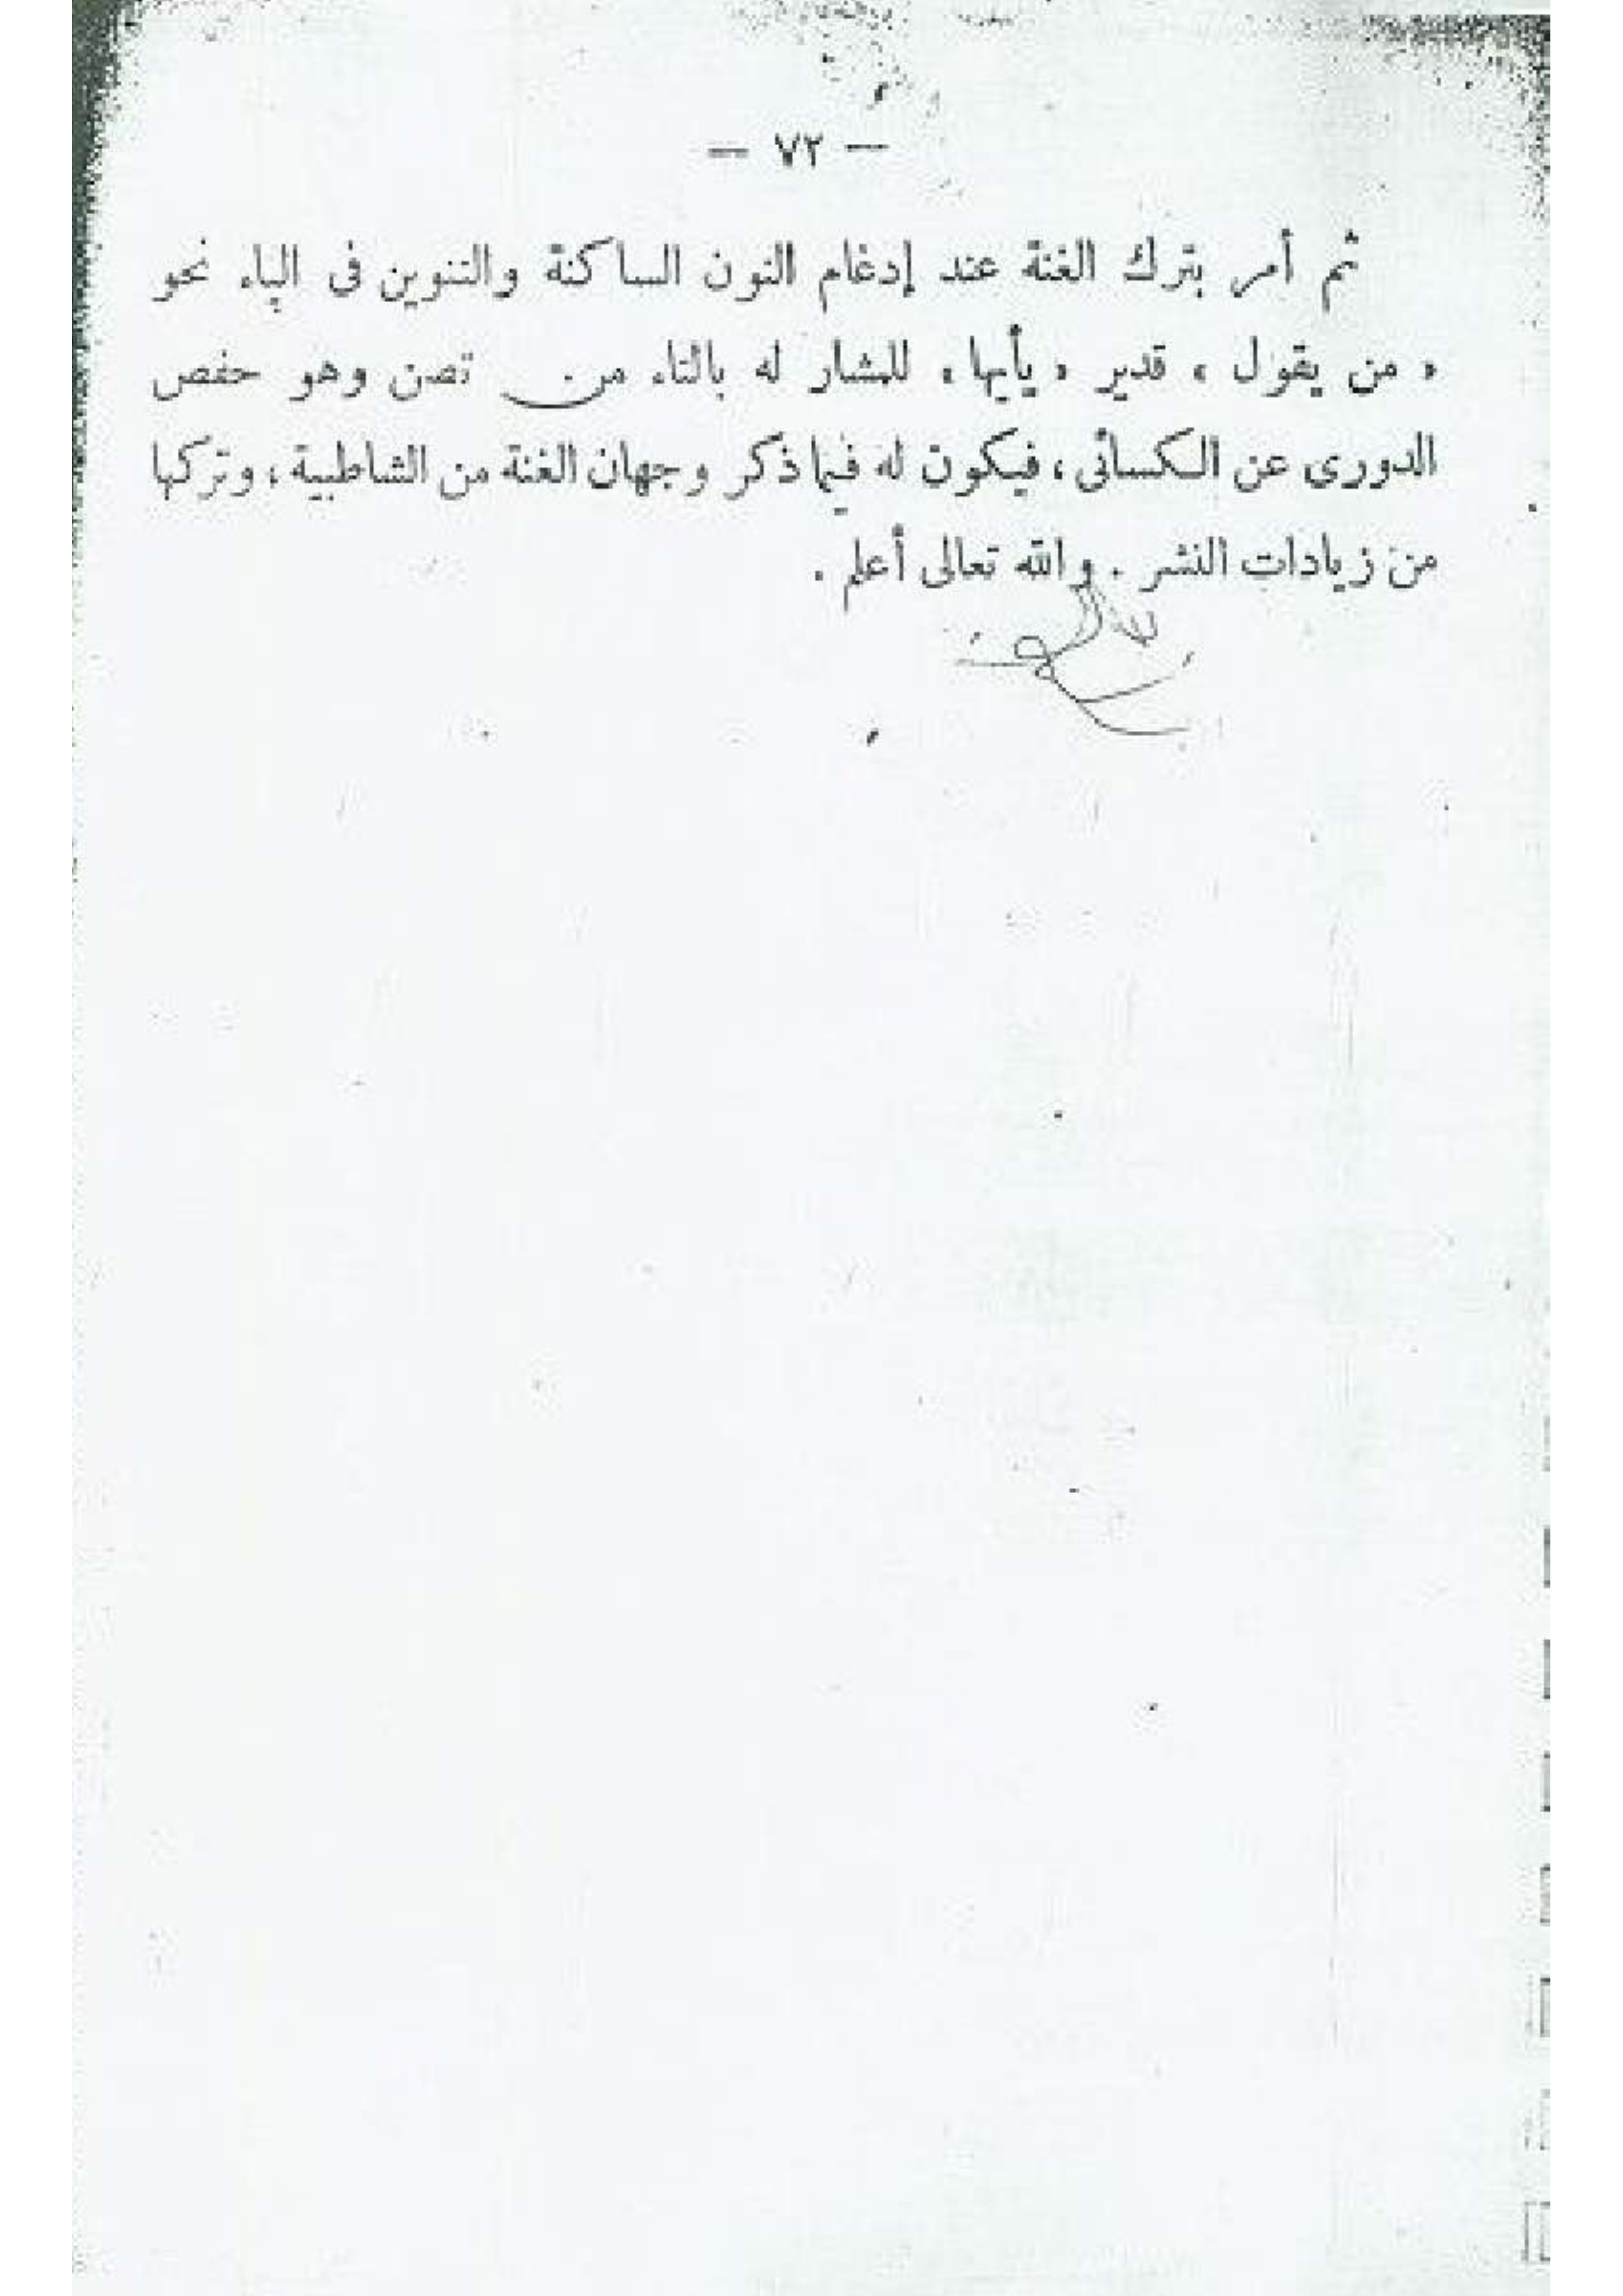 — ٧٢ —
ثم أمر بترك الغنة عند إدغام النون الساكنة والتنوين فى الياء نحو
« من يقول ، قدير « يأيها » للمشار له بالتاء من تصن وهو حفص
الدورى عن الكسائى ، فيكون له فيما ذكر وجهان الغنة من الشاطبية ، وتركها
من زيادات النشر . والله تعالى أعلم .